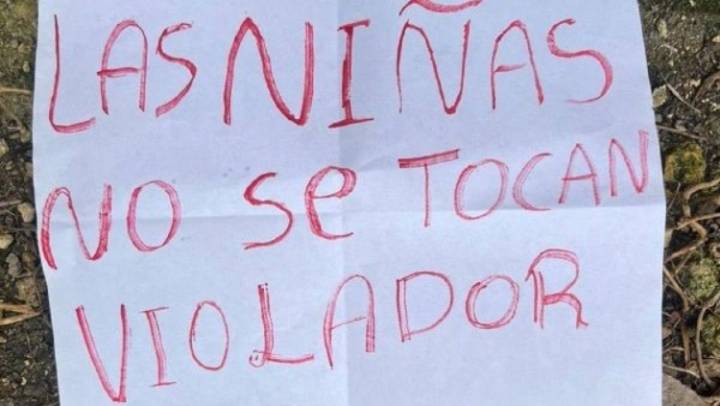 LAS NIÑAS
NO Se TOCAN
VIOLADOR